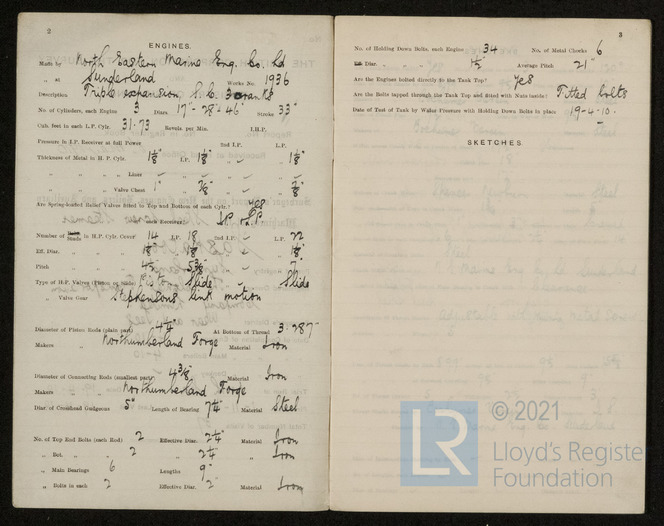 2
ENGINES.
Made by North Eastern Marine Eng. Co. Ld
„ at Sunderland Works No. 1936
Description Triple expansion, S.C. 3 cranks
No. of Cylinders, each Engine 3 Diars. 17"-28"-46" Stroke 33"
Cub. feet in each L.P. Cylr. 31.73 Revols per Min. I.H.P.
Pressure in I.P. Receiver at full Power 2nd I.P. L.P.
Thickness of Metal in H.P. Cylr. 1 1/8" I.P. 1 1/8" „ L.P. 1 1/8"
„ „ „ Liner – „ – „ „ –
„ „ „ Valve Chest 1" „ 7/8" „ „ 7/8"
Are Spring-loaded Relief Valves fitted to Top and Bottom of each Cylr.? yes
„ „ „ each Receiver? I.P. & L.P.
Number of Studs in H.P. Cylr. Cover 14 I.P. 18 2nd I.P. – L.P. 22
Eff. Diar. „ 1 1/8" „ 1 1/8" „ – „ 1 1/8"
Pitch „ 4 1/2" „ 5 3/8" „ – „ 7"
Type of H.P. Valves (Piston or Slide) Piston Slide Slide
„ Valve Gear Stephensons link motion
Diameter of Piston Rods (plain part) 4 1/4" At Bottom of Thread 3.287"
Makers Northumberland Forge Material Iron
Diameter of Connecting Rods (smallest part) 4 3/8" Material Iron
Makers Northumberland Forge
Diar. of Crosshead Gudgeons 5" Length of Bearing 7 1/4" Material Steel
No. of Top End Bolts (each Rod) 2 Effective Diar. 2 1/4" Material Iron
„ Bot. „ „ 2 „ 2 1/4" „ Iron
„ Main Bearings 6 Lengths 9"
„ Bolts in each 2 Effective Diar. 2" Material Iron
3
No. of Holding Down Bolts, each Engine 34 No. of Metal Chocks 6
Diar. 1 1/2" Average Pitch 21"
Are the Engines bolted directly to the Tank Top? yes
Are the Bolts tapped through the Tank Top and fitted with Nuts inside? Fitted bolts
Date of Test of Tank by Water Pressure with Holding Down Bolts in place 19-4-10.
SKETCHES.
© 2021
LR Lloyd's Register
Foundation